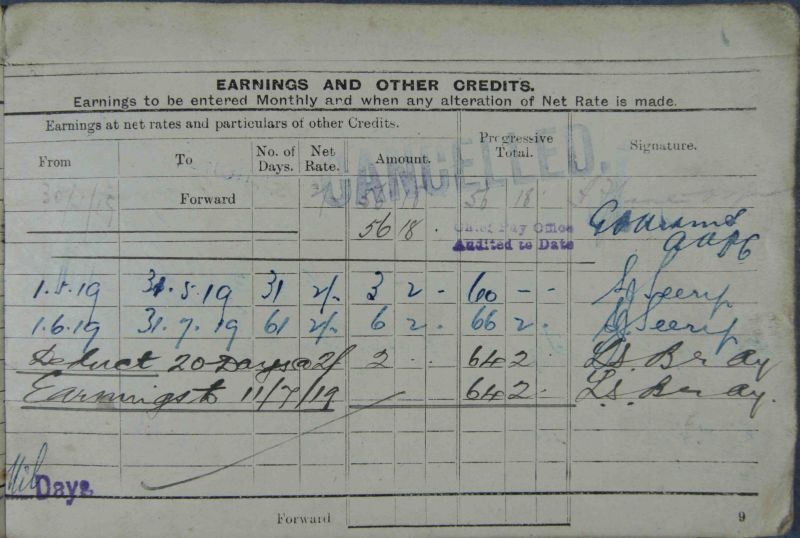 EARNINGS AND OTHER CREDITS.
Earnings to be entered Monthly and when any alteration of Net Rate is made.
Earnings at net rates and particulars of other Credits.
From To No. of Days. Net Rate. Amount. Progressive Total. Signature.
CANCELLED.
Forward 56 18 56 18
56 18 .
Chief Pay Office
Audited to Date
1.5.19 31.5.19 31 2/- 3 2 - 60 - -
1.6.19 31.7.19 61 2/- 6 2 - 66 2 -
Deduct 20 Days @ 2/ 2 . . 64 2
Earnings to 11/7/19 64 2 -
Nil Days
Forward
9